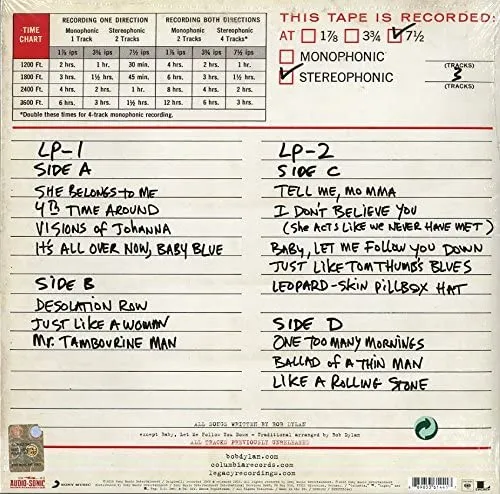 TIME CHART
RECORDING ONE DIRECTION
RECORDING BOTH DIRECTIONS
Monophonic 1 Track
Stereophonic 2 Tracks
Monophonic 2 Tracks
Stereophonic 4 Tracks*
1⅞ ips 3¾ ips 7½ ips 1⅞ ips 3¾ ips 7½ ips
1200 Ft. 2 hrs. 1 hr. 30 min. 4 hrs. 2 hrs. 1 hr.
1800 Ft. 3 hrs. 1½ hrs. 45 min. 6 hrs. 3 hrs. 1½ hrs.
2400 Ft. 4 hrs. 2 hrs. 1 hr. 8 hrs. 4 hrs. 2 hrs.
3600 Ft. 6 hrs. 3 hrs. 1½ hrs. 12 hrs. 6 hrs. 3 hrs.
*Double these times for 4-track monophonic recording.
THIS TAPE IS RECORDED:
AT 1⅞ 3¾ 7½
MONOPHONIC
(TRACKS)
STEREOPHONIC 3
(TRACKS)
LP-1
SIDE A
SHE BELONGS TO ME
4th TIME AROUND
VISIONS OF JOHANNA
IT'S ALL OVER NOW, BABY BLUE
SIDE B
DESOLATION ROW
JUST LIKE A WOMAN
MR. TAMBOURINE MAN
LP-2
SIDE C
TELL ME, MOMMA
I DON'T BELIEVE YOU
(SHE ACTS LIKE WE NEVER HAVE MET)
BABY, LET ME FOLLOW YOU DOWN
JUST LIKE TOM THUMB'S BLUES
LEOPARD-SKIN PILLBOX HAT
SIDE D
ONE TOO MANY MORNINGS
BALLAD OF A THIN MAN
LIKE A ROLLING STONE
ALL SONGS WRITTEN BY BOB DYLAN
except Baby, Let Me Follow You Down - Traditional arranged by Bob Dylan
ALL TRACKS PREVIOUSLY UNRELEASED
bobdylan.com
columbiarecords.com
legacyrecordings.com
AUDIO-SONIC
SONY MUSIC